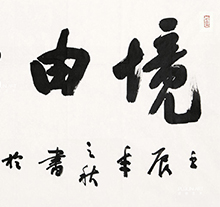 境由
壬辰年之秋书於